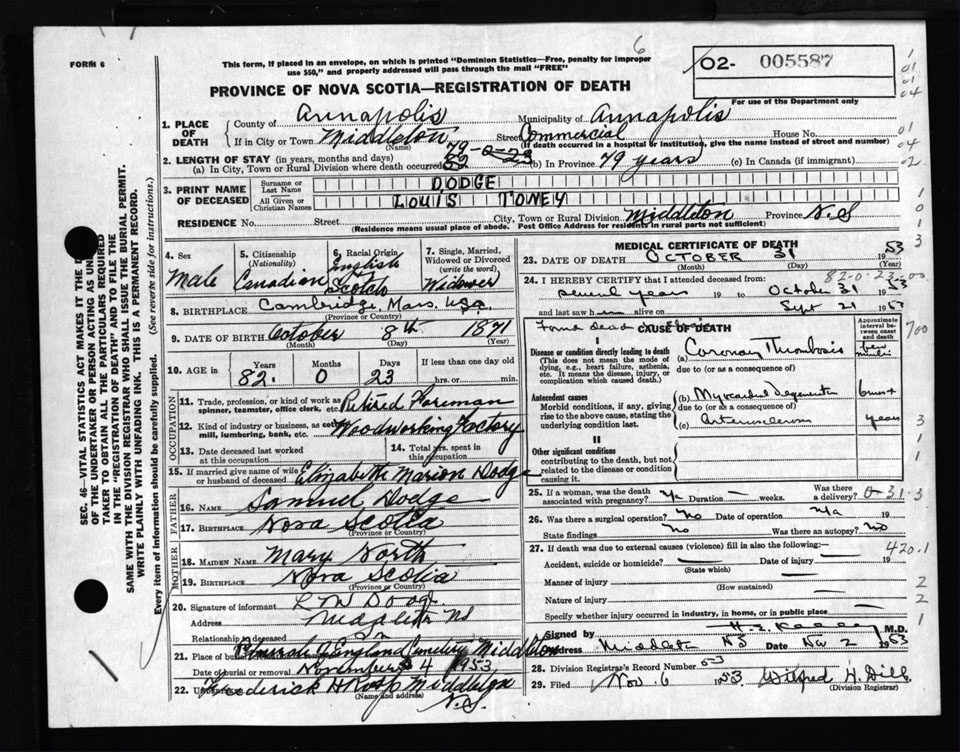 6
FORM 6
This form, if placed in an envelope, on which is printed "Dominion Statistics—Free, penalty for improper
use $50," and properly addressed will pass through the mail "FREE"
02- 005587
For use of the Department only
PROVINCE OF NOVA SCOTIA—REGISTRATION OF DEATH
1. PLACE OF DEATH
County of Annapolis Municipality of Annapolis
If in City or Town Middleton Street Commercial House No.
(Name) (If death occurred in a hospital or institution, give the name instead of street and number)
79-0-23
2. LENGTH OF STAY (in years, months and days)
(a) In City, Town or Rural Division where death occurred (b) In Province 79 years (c) In Canada (if immigrant)
3. PRINT NAME OF DECEASED
Surname or Last Name DODGE
All Given or Christian Names LOUIS TONEY
RESIDENCE No. Street City, Town or Rural Division Middleton Province N.S
(Residence means usual place of abode. Post Office Address for residents in rural parts not sufficient)
4. Sex Male
5. Citizenship (Nationality) Canadian
6. Racial Origin English Scotch
7. Single, Married, Widowed or Divorced (write the word) Widower
8. BIRTHPLACE Cambridge, Mass, USA.
(Province or Country)
9. DATE OF BIRTH October 8th 1871
(Month) (Day) (Year)
10. AGE in Years 82. Months 0 Days 23 If less than one day old hrs. or min.
OCCUPATION
11. Trade, profession, or kind of work as spinner, teamster, office clerk, etc. Retired Foreman
12. Kind of industry or business, as cotton mill, lumbering, bank, etc. Woodworking Factory
13. Date deceased last worked at this occupation
14. Total yrs. spent in this occupation
15. If married give name of wife or husband of deceased Elizabeth Marion Dodge
FATHER
16. NAME Samuel Dodge
17. BIRTHPLACE Nova Scotia
(Province or Country)
MOTHER
18. MAIDEN NAME Mary North
19. BIRTHPLACE Nova Scotia
(Province or Country)
20. Signature of informant
Address Middleton NS
Relationship to deceased Son
21. Place of burial Church of England Cemetery Middleton
Date of burial or removal November 4 1953
22. Undertaker Middleton
(Name and address) N.S.
MEDICAL CERTIFICATE OF DEATH
23. DATE OF DEATH OCTOBER 31 1953
(Month) (Day) (Year)
82-0-23-00
24. I HEREBY CERTIFY that I attended deceased from:
several years 19 to October 31 1953
and last saw h alive on Sept 21 1953
Found dead
CAUSE OF DEATH
Approximate interval between onset and death
I
Disease or condition directly leading to death
(This does not mean the mode of dying, e.g., heart failure, asthenia, etc. It means the disease, injury, or complication which caused death.)
(a) Coronary Thrombosis few minutes
due to (or as a consequence of)
Antecedent causes
Morbid conditions, if any, giving rise to the above cause, stating the underlying condition last.
(b) Myocardial degeneration
due to (or as a consequence of)
(c) Arteriosclerosis years
II
Other significant conditions
contributing to the death, but not related to the disease or condition causing it.
25. If a woman, was the death associated with pregnancy? Duration — weeks. Was there a delivery?
0-31.3
26. Was there a surgical operation? No Date of operation n/a 19
State findings no Was there an autopsy? No
27. If death was due to external causes (violence) fill in also the following:—
420.1
Accident, suicide or homicide? — Date of injury — 19
(State which)
Manner of injury —
(How sustained)
Nature of injury —
Specify whether injury occurred in industry, in home, or in public place
Signed by M.D.
Address Middleton NS Date Nov 2 1953
28. Division Registrar's Record Number 53
29. Filed Nov. 6 1953. Wilfred H. Dill
(Division Registrar)
SEC. 46—VITAL STATISTICS ACT MAKES IT THE D
OF THE UNDERTAKER OR PERSON ACTING AS UN
TAKER TO OBTAIN ALL THE PARTICULARS REQUIRED
IN THE "REGISTRATION OF DEATH" AND TO FILE THE
SAME WITH THE DIVISION REGISTRAR WHO SHALL ISSUE THE BURIAL PERMIT.
WRITE PLAINLY WITH UNFADING INK. THIS IS A PERMANENT RECORD.
Every item of information should be carefully supplied. (See reverse side for instructions.)